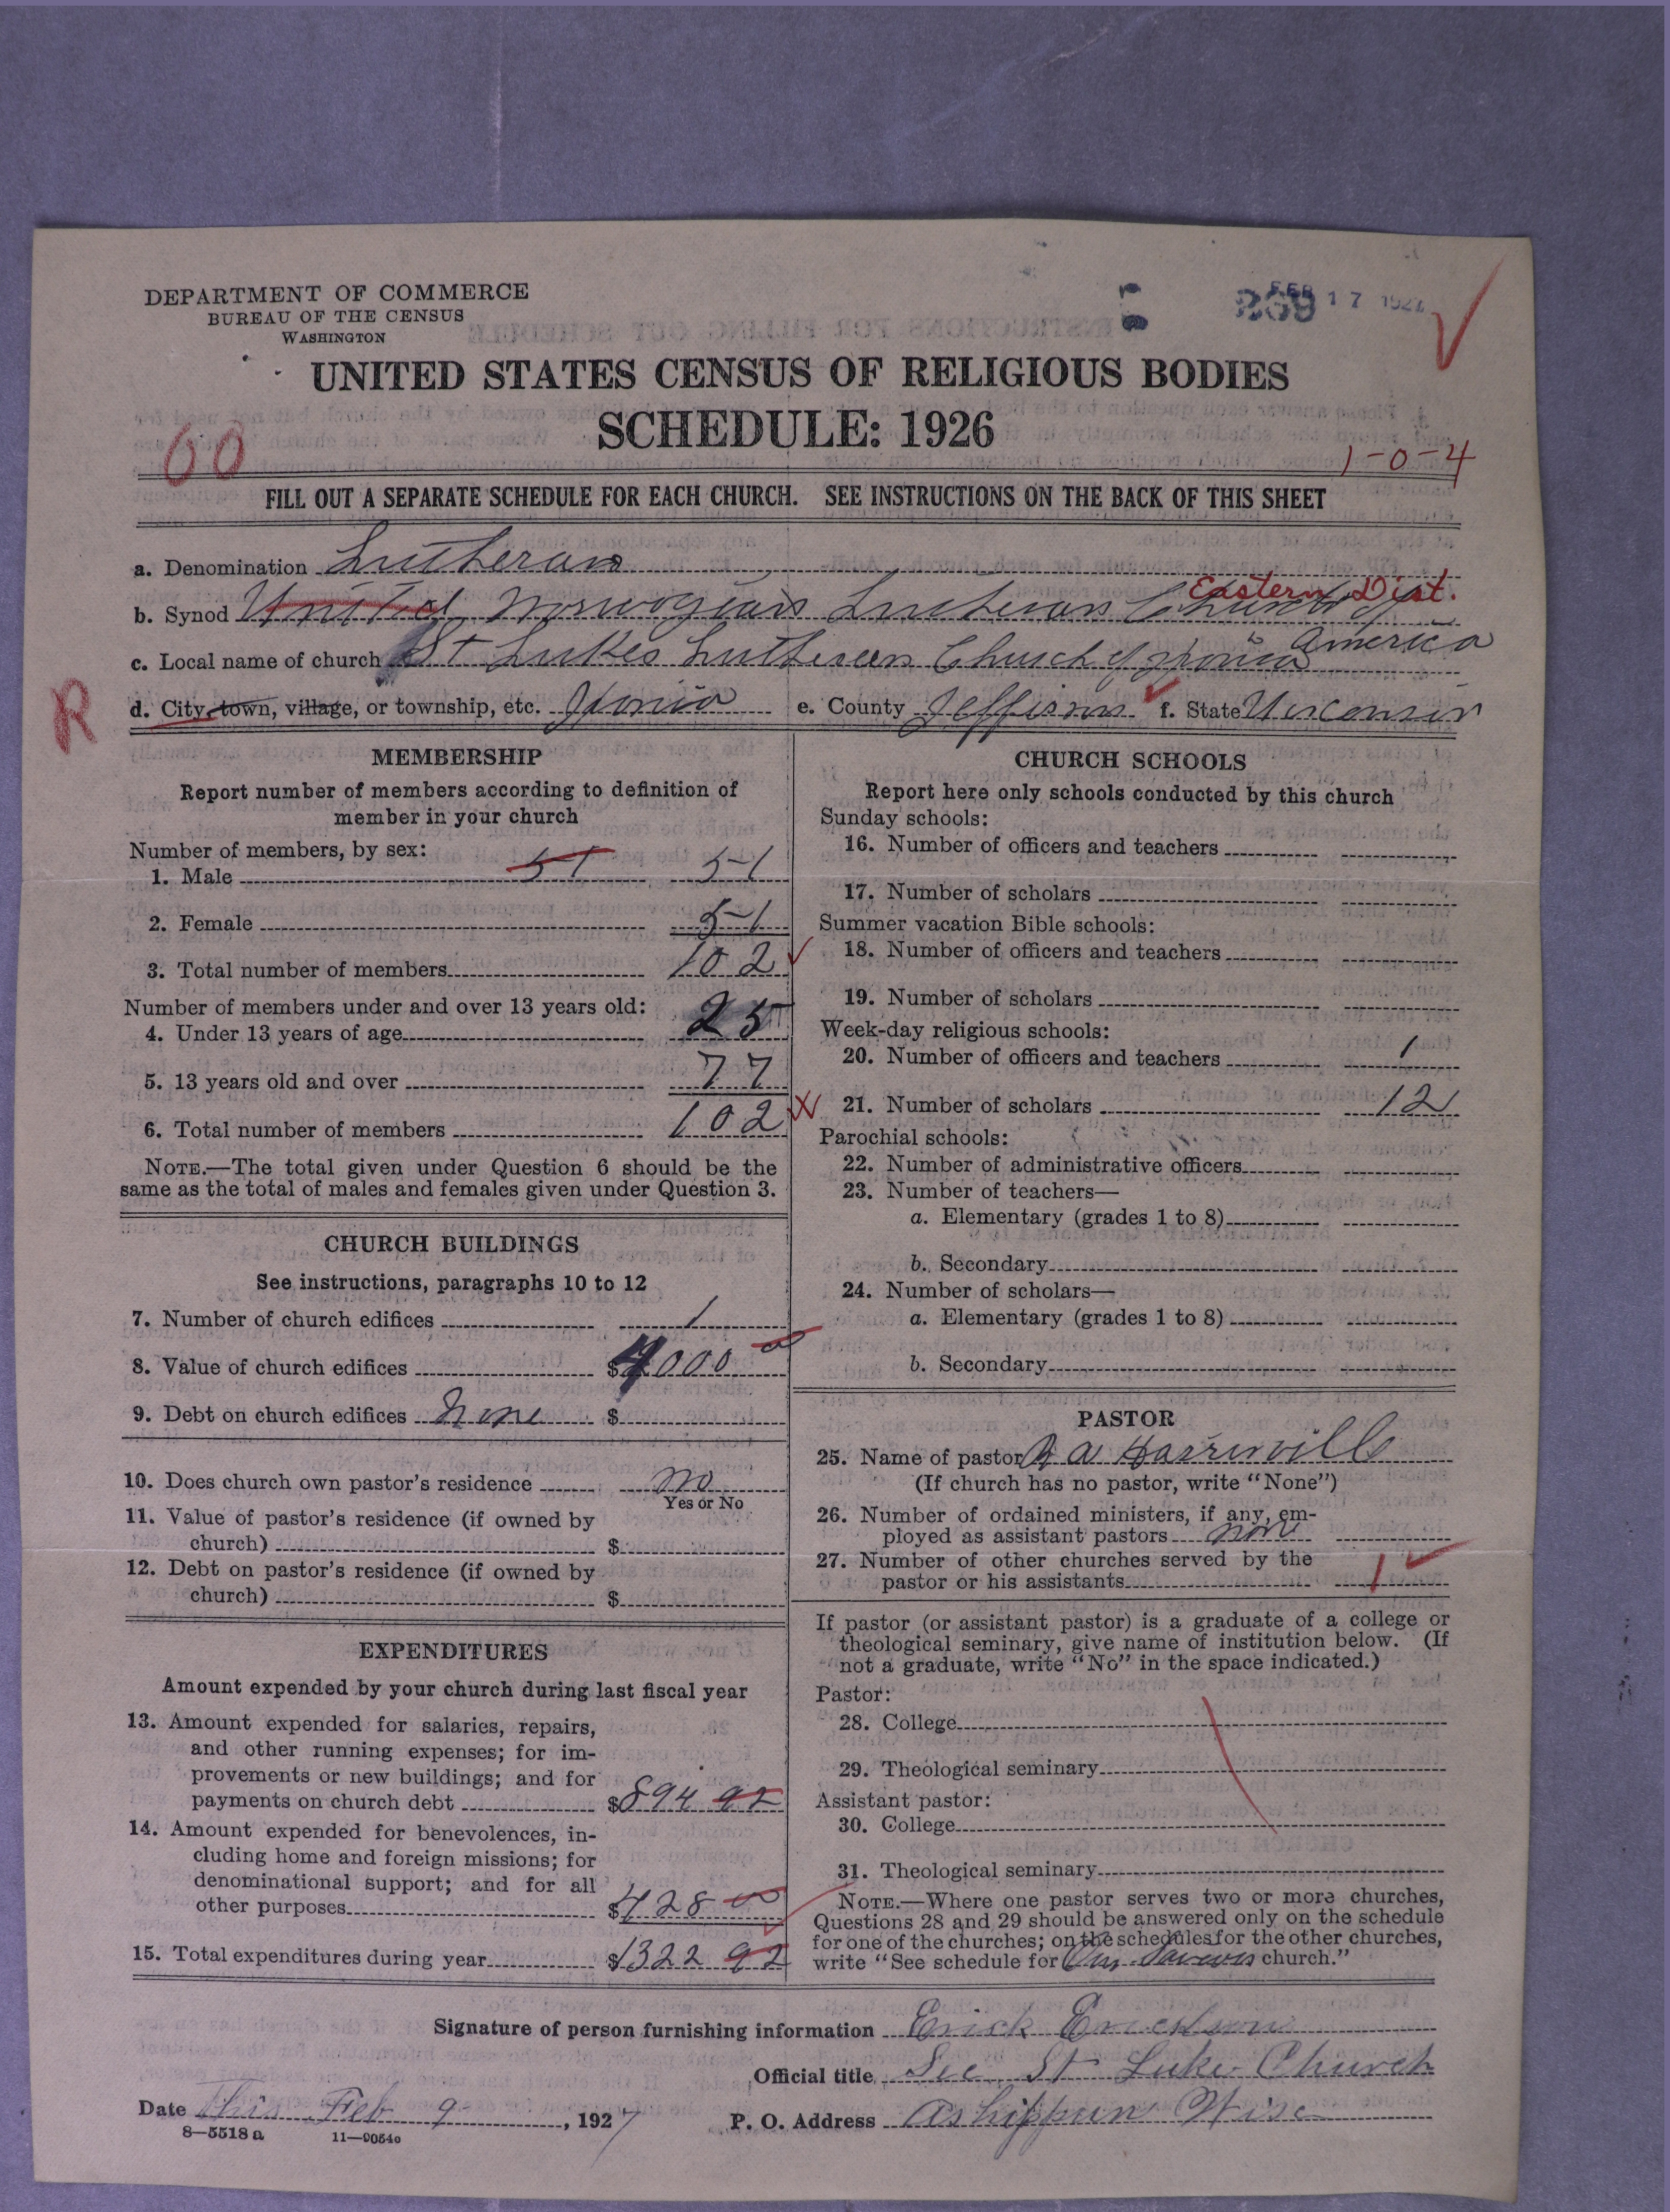 DEPARTMENT OF COMMERCE
BUREAU OF THE CENSUS
WASHINGTON
FEB 17 1927
UNITED STATES CENSUS OF RELIGIOUS BODIES
SCHEDULE: 1926
60
1-0-4
FILL OUT A SEPARATE SCHEDULE FOR EACH CHURCH. SEE INSTRUCTIONS ON THE BACK OF THIS SHEET
a. Denomination Lutheran
Eastern Dist.
b. Synod United Norwegian Lutheran Church of America
c. Local name of church St Lukes Lutheran Church of Ixonia
R
d. City, town, village, or township, etc. Ixonia e. County Jefferson f. State Wisconsin
MEMBERSHIP
Report number of members according to definition of
member in your church
Number of members, by sex:
1. Male 51 51
2. Female 51
3. Total number of members 102
Number of members under and over 13 years old:
4. Under 13 years of age 25
5. 13 years old and over 77
6. Total number of members 102
NOTE.—The total given under Question 6 should be the
same as the total of males and females given under Question 3.
CHURCH BUILDINGS
See instructions, paragraphs 10 to 12
7. Number of church edifices 1
8. Value of church edifices $4000
9. Debt on church edifices None $
10. Does church own pastor's residence No
Yes or No
11. Value of pastor's residence (if owned by
church) $
12. Debt on pastor's residence (if owned by
church) $
EXPENDITURES
Amount expended by your church during last fiscal year
13. Amount expended for salaries, repairs,
and other running expenses; for im-
provements or new buildings; and for
payments on church debt $894 92
14. Amount expended for benevolences, in-
cluding home and foreign missions; for
denominational support; and for all
other purposes $428
15. Total expenditures during year $1322 92
CHURCH SCHOOLS
Report here only schools conducted by this church
Sunday schools:
16. Number of officers and teachers
17. Number of scholars
Summer vacation Bible schools:
18. Number of officers and teachers
19. Number of scholars
Week-day religious schools:
20. Number of officers and teachers 1
21. Number of scholars 12
Parochial schools:
22. Number of administrative officers
23. Number of teachers—
a. Elementary (grades 1 to 8)
b. Secondary
24. Number of scholars—
a. Elementary (grades 1 to 8)
b. Secondary
PASTOR
25. Name of pastor
(If church has no pastor, write "None")
26. Number of ordained ministers, if any, em-
ployed as assistant pastors none
27. Number of other churches served by the
pastor or his assistants 1
If pastor (or assistant pastor) is a graduate of a college or
theological seminary, give name of institution below. (If
not a graduate, write "No" in the space indicated.)
Pastor:
28. College
29. Theological seminary
Assistant pastor:
30. College
31. Theological seminary
NOTE.—Where one pastor serves two or more churches,
Questions 28 and 29 should be answered only on the schedule
for one of the churches; on the schedules for the other churches,
write "See schedule for Our Saviours church."
Signature of person furnishing information Erick Erickson
Official title Sec St Luke Church
Date This Feb 9, 1927 P. O. Address Ashippun Wise
8—5518a 11—9054o